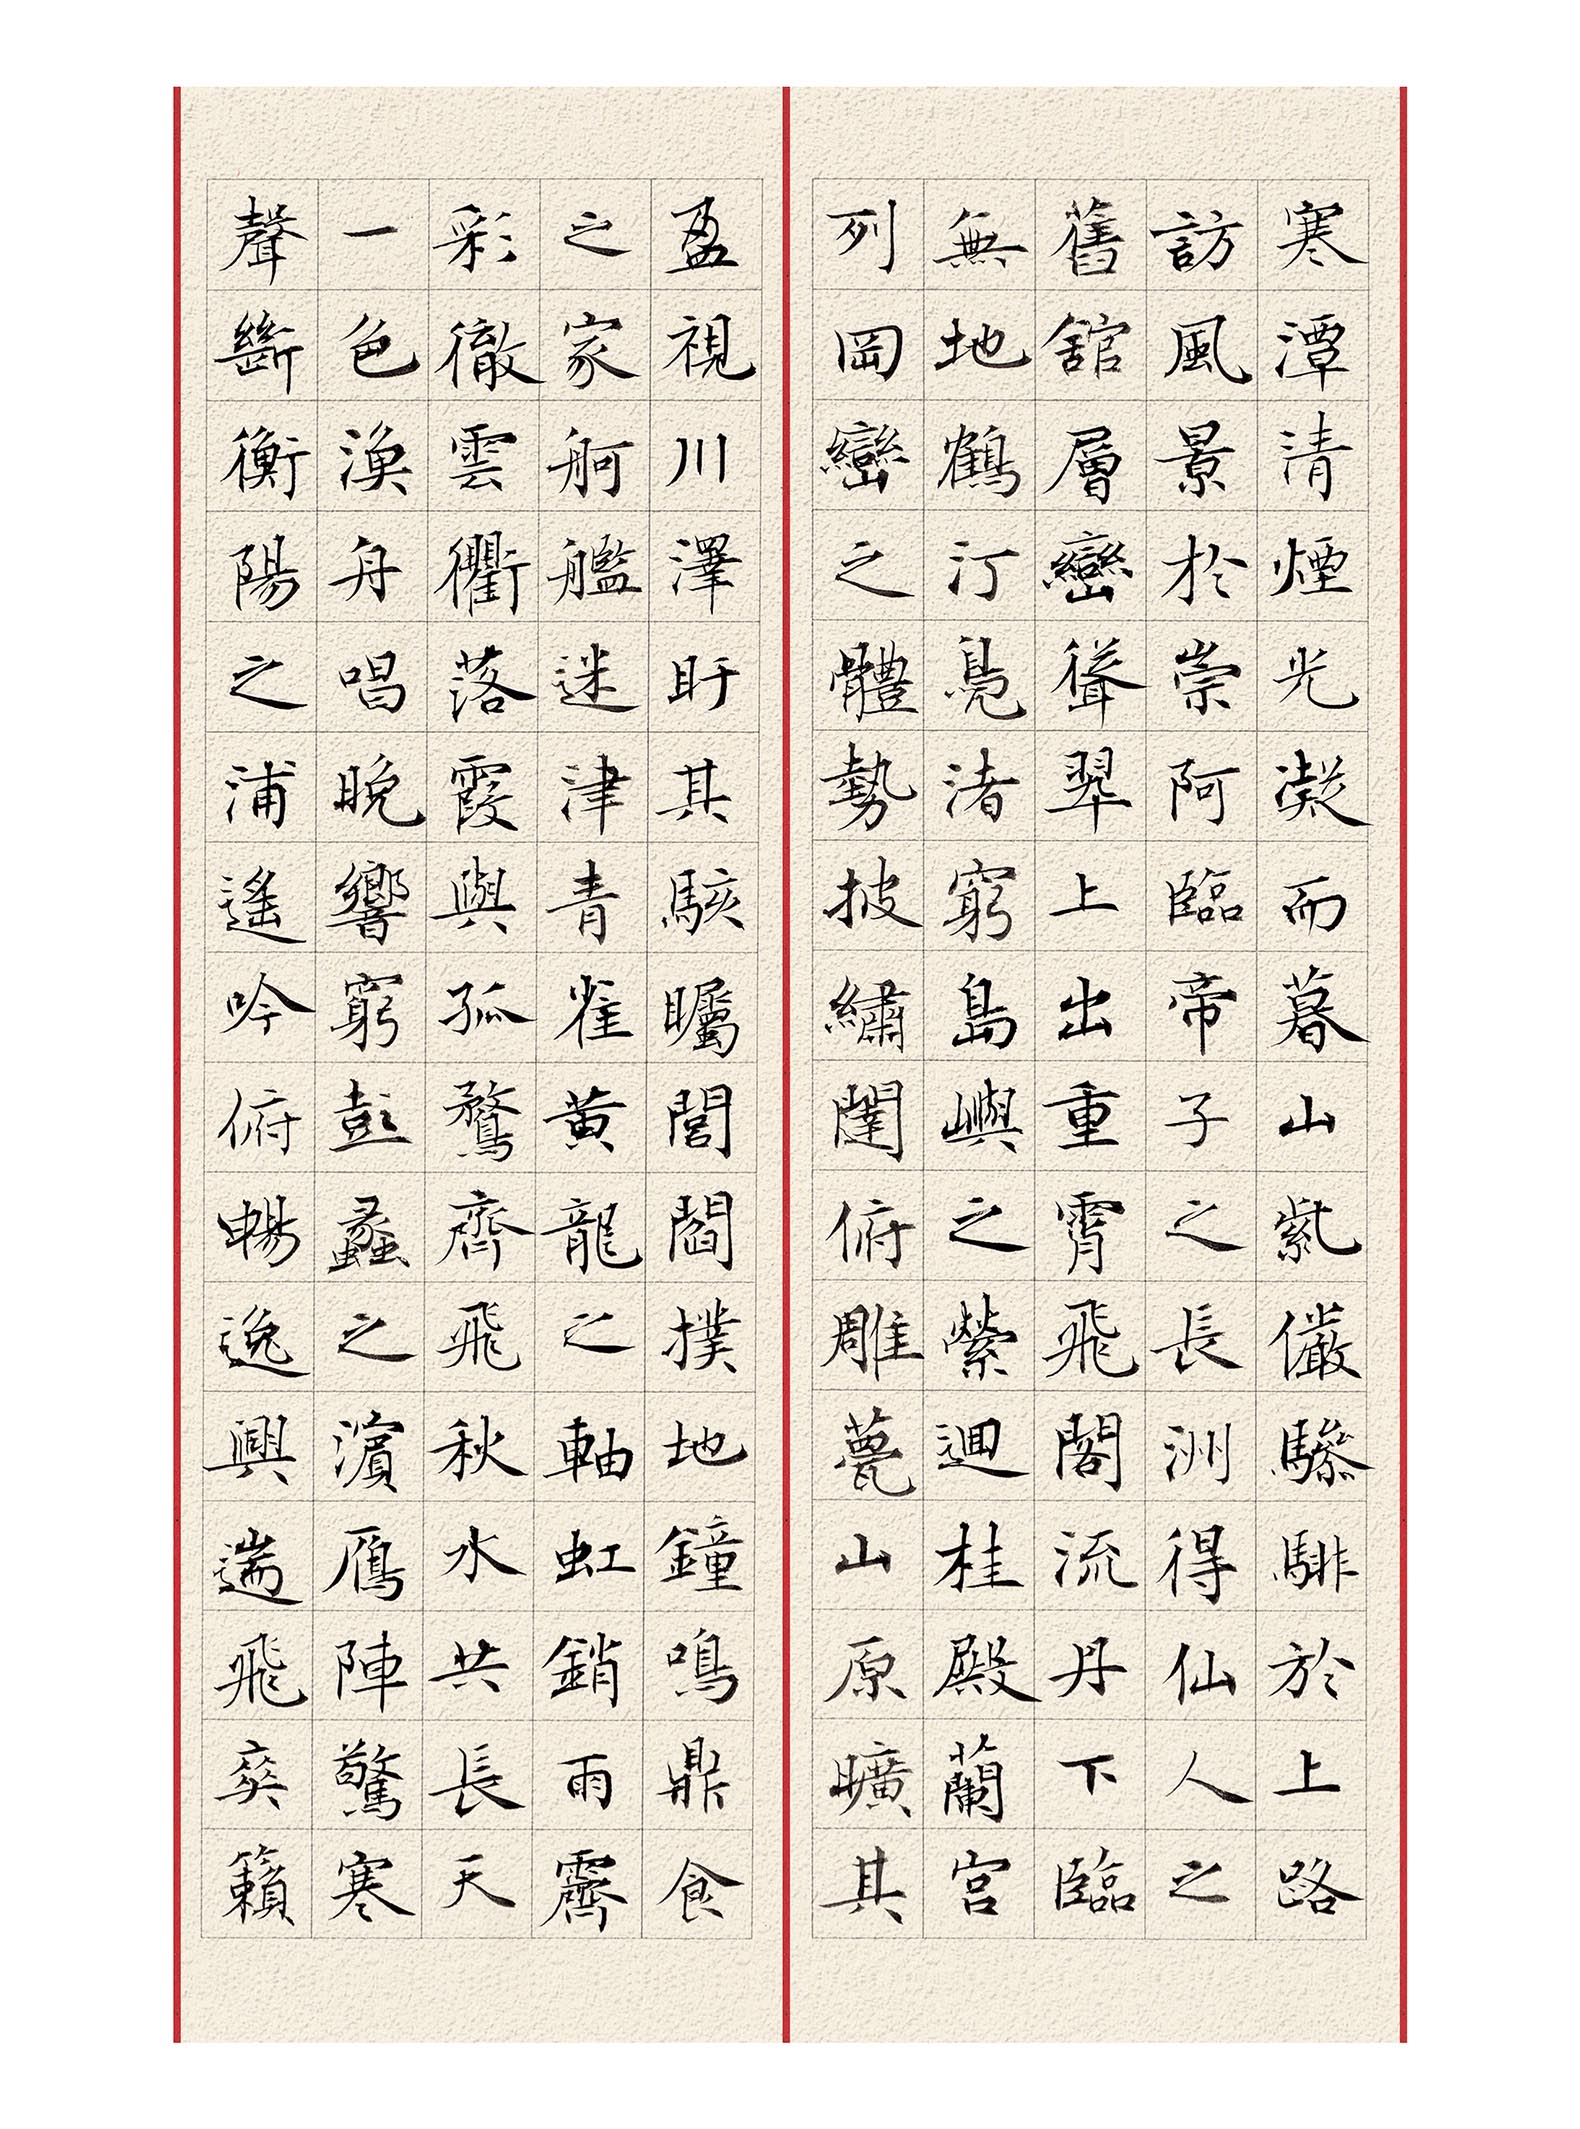 寒潭清煙光凝而暮山紫儼驂騑於上路
訪風景於崇阿臨帝子之長洲得仙人之
舊舘層巒聳翠上出重霄飛閣流丹下臨
無地鶴汀鳧渚窮島嶼之縈迴桂殿蘭宮
列岡巒之體勢披繡闥俯雕甍山原曠其
盈視川澤盱其駭矚閭閻撲地鐘鳴鼎食
之家舸艦迷津青雀黃龍之軸虹銷雨霽
彩徹雲衢落霞與孤鶩齊飛秋水共長天
一色漁舟唱晚響窮彭蠡之濱雁陣驚寒
聲斷衡陽之浦遙吟俯暢逸興遄飛爽籟